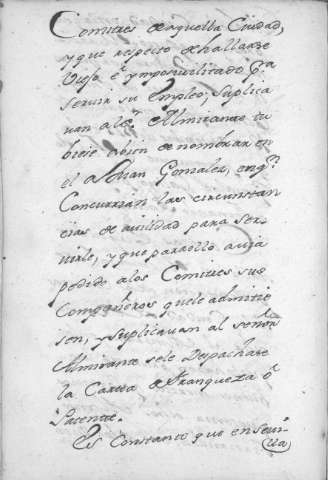 Comitres de aquella Ciudad,
y que respecto de hallarse
Viejo è ymposivilitado pa
servir su Empleo; suplica
van al sr. Almirante tu
biese abien de nombrar en
el a Juan Gonzalez, en qn.
Concurrian las circunstan
cias de avilidad para ser
virle, y que para ello avia
pedido a los Comitres sus
Compañeros que le admitie
sen, y Suplicavan al señor
Almirante se le Despachase
la Carta de Franqueza ò
Patente.
Es Constante que en Sevi
lla,